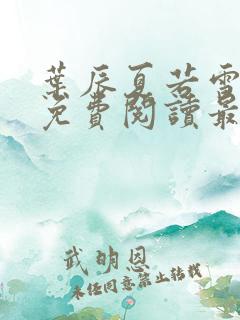 葉辰夏若雪
免費閱讀最
武明恩
未经同意禁止转载